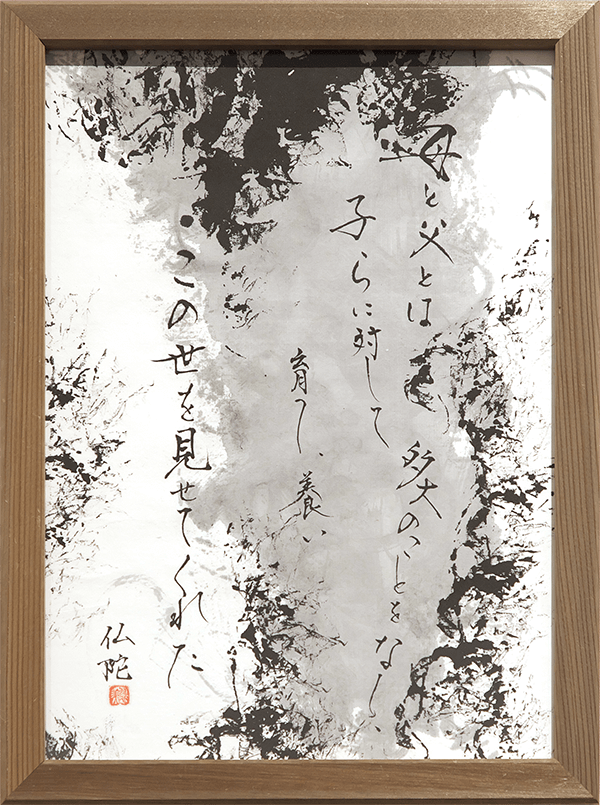 母と父とは 多大のことをなし、
子らに対して
育 、養い
・この世を見せてくれた
仏陀